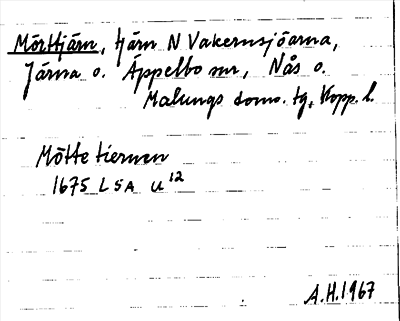 Mörttjärn, tjärn N Vakernsjöarna,
Järna o. Äppelbo snr, Nås o.
Malungs doms. tg, Kopp. l.
Mötte tiernen
1675 LSA U¹²
A.H. 1967